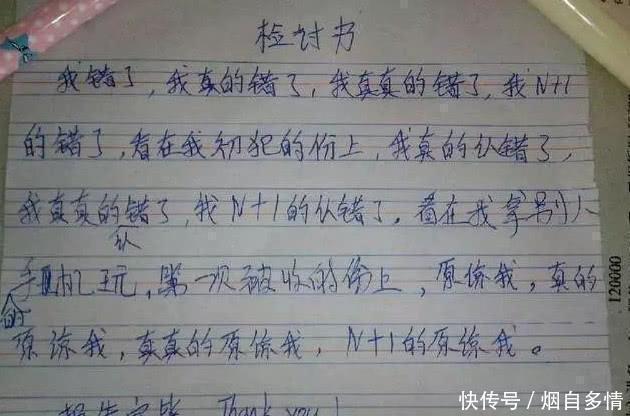 检讨书
我错了，我真的错了，我真真的错了，我N+1
的错了，看在我初犯的份上，我真的认错了，
我真真的错了，我N+1的认错了，看在我拿别人
认
手机玩，第一次被收的份上，原谅我，真的
的
原谅我，真真的原谅我，N+1的原谅我。
报告完毕 Thank you!
120000
快传号／烟自多情